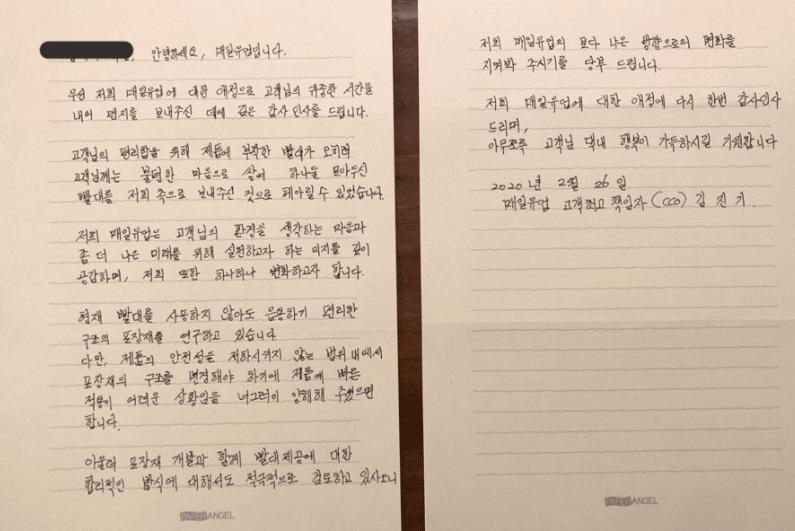 안녕하세요, 매일유업입니다.
우선 저희 매일유업에 대한 애정으로 고객님의 귀중한 시간을
내어 편지를 보내주신 데에 깊은 감사 인사를 드립니다.
고객님의 편리함을 위해 제품에 부착한 빨대가 오히려
고객님께는 불편한 마음으로 쌓여 하나둘 모아두신
빨대를 저희 쪽으로 보내주신 것으로 헤아릴 수 있었습니다.
저희 매일유업은 고객님의 환경을 생각하는 마음과
좀 더 나은 미래를 위해 실천하고자 하는 의지를 깊이
공감하며, 저희 또한 하나하나 변화하고자 합니다.
현재 빨대를 사용하지 않아도 음용하기 편리한
구조의 포장재를 연구하고 있습니다
다만, 제품의 안전성을 저하시키지 않는 범위 내에서
포장재의 구조를 변경해야 하기에 제품에 빠른
적용이 어려운 상황임을 너그러이 양해해 주셨으면
합니다.
아울러 포장재 개발과 함께 빨대제공에 대한
합리적인 방식에 대해서도 적극적으로 검토하고 있사오니
ANGEL
저희 매일유업의 보다 나은 방향으로의 변화를
지켜봐 주시기를 당부 드립니다.
저희 매일유업에 대한 애정에 다시 한번 감사인사
드리며,
아무쪼록 고객님 댁내 행복이 가득하시길 기원합니다
2020년 2월 26일
매일유업 고객최고책임자(CCO) 김진기
ANGEL